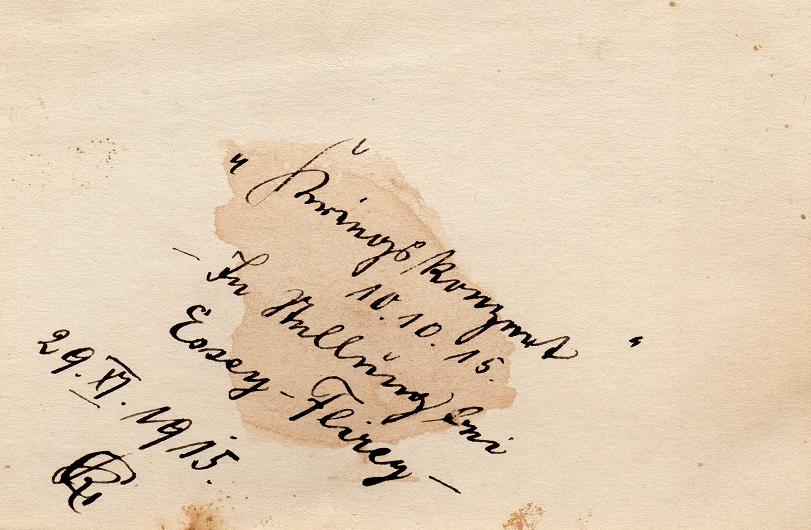 10.10.15.
– In Stellung bei
Essey-Flirey –
29.XI.1915.